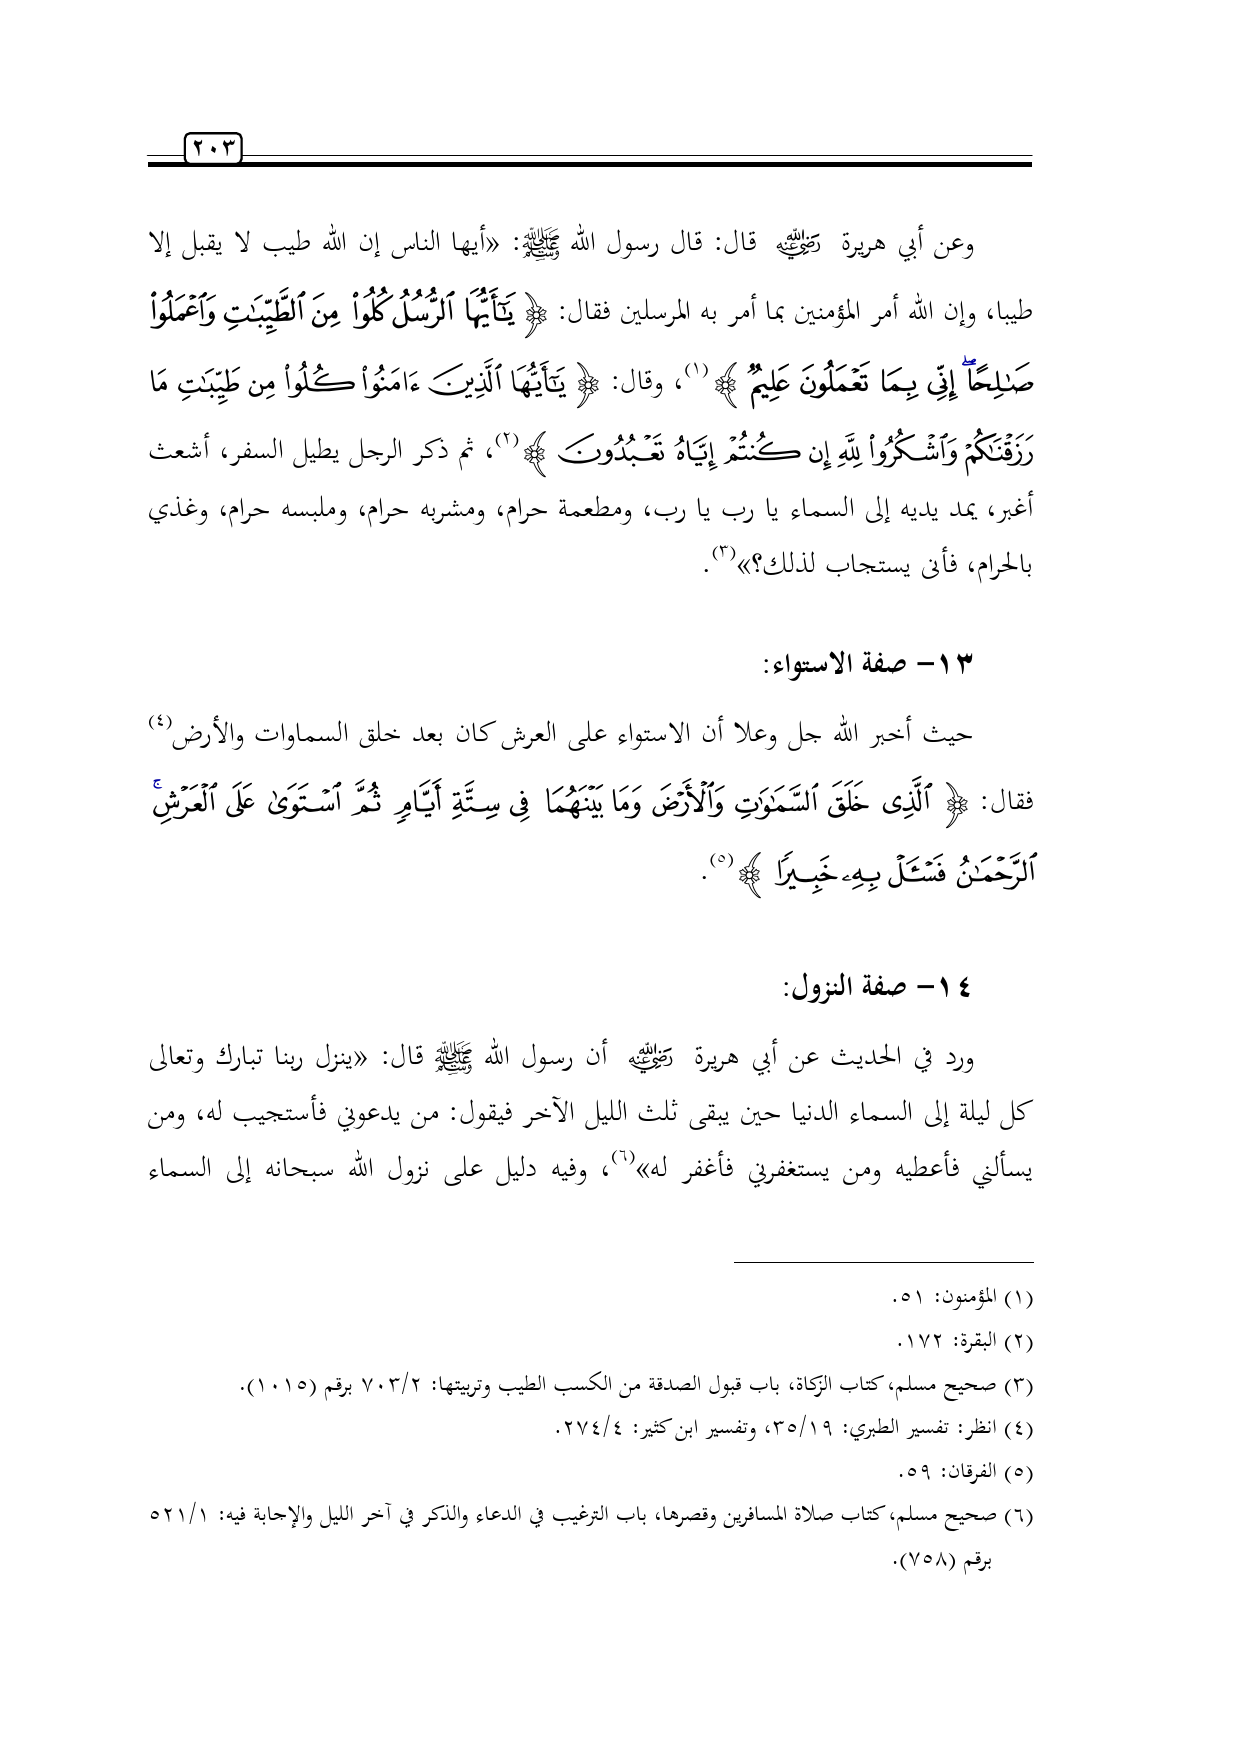 ٢٠٣
وعن أبي هريرة ﵁ قال: قال رسول الله ﷺ: «أيها الناس إن الله طيب لا يقبل إلا
طيبا، وإن الله أمر المؤمنين بما أمر به المرسلين فقال: ﴿ يَٰٓأَيُّهَا ٱلرُّسُلُ كُلُوا۟ مِنَ ٱلطَّيِّبَٰتِ وَٱعْمَلُوا۟
صَٰلِحًاۖ إِنِّى بِمَا تَعْمَلُونَ عَلِيمٌ ﴾(١)، وقال: ﴿ يَٰٓأَيُّهَا ٱلَّذِينَ ءَامَنُوا۟ كُلُوا۟ مِن طَيِّبَٰتِ مَا
رَزَقْنَٰكُمْ وَٱشْكُرُوا۟ لِلَّهِ إِن كُنتُمْ إِيَّاهُ تَعْبُدُونَ ﴾(٢)، ثم ذكر الرجل يطيل السفر، أشعث
أغبر، يمد يديه إلى السماء يا رب يا رب، ومطعمة حرام، ومشربه حرام، وملبسه حرام، وغذي
بالحرام، فأنى يستجاب لذلك؟»(٣).
١٣– صفة الاستواء:
حيث أخبر الله جل وعلا أن الاستواء على العرش كان بعد خلق السماوات والأرض(٤)
فقال: ﴿ ٱلَّذِى خَلَقَ ٱلسَّمَٰوَٰتِ وَٱلْأَرْضَ وَمَا بَيْنَهُمَا فِى سِتَّةِ أَيَّامٍ ثُمَّ ٱسْتَوَىٰ عَلَى ٱلْعَرْشِۚ
ٱلرَّحْمَٰنُ فَسْـَٔلْ بِهِۦ خَبِيرًا ﴾(٥).
١٤– صفة النزول:
ورد في الحديث عن أبي هريرة ﵁ أن رسول الله ﷺ قال: «ينزل ربنا تبارك وتعالى
كل ليلة إلى السماء الدنيا حين يبقى ثلث الليل الآخر فيقول: من يدعوني فأستجيب له، ومن
يسألني فأعطيه ومن يستغفرني فأغفر له»(٦)، وفيه دليل على نزول الله سبحانه إلى السماء
(١) المؤمنون: ٥١.
(٢) البقرة: ١٧٢.
(٣) صحيح مسلم، كتاب الزكاة، باب قبول الصدقة من الكسب الطيب وتربيتها: ٧٠٣/٢ برقم (١٠١٥).
(٤) انظر: تفسير الطبري: ٣٥/١٩، وتفسير ابن كثير: ٢٧٤/٤.
(٥) الفرقان: ٥٩.
(٦) صحيح مسلم، كتاب صلاة المسافرين وقصرها، باب الترغيب في الدعاء والذكر في آخر الليل والإجابة فيه: ٥٢١/١
برقم (٧٥٨).